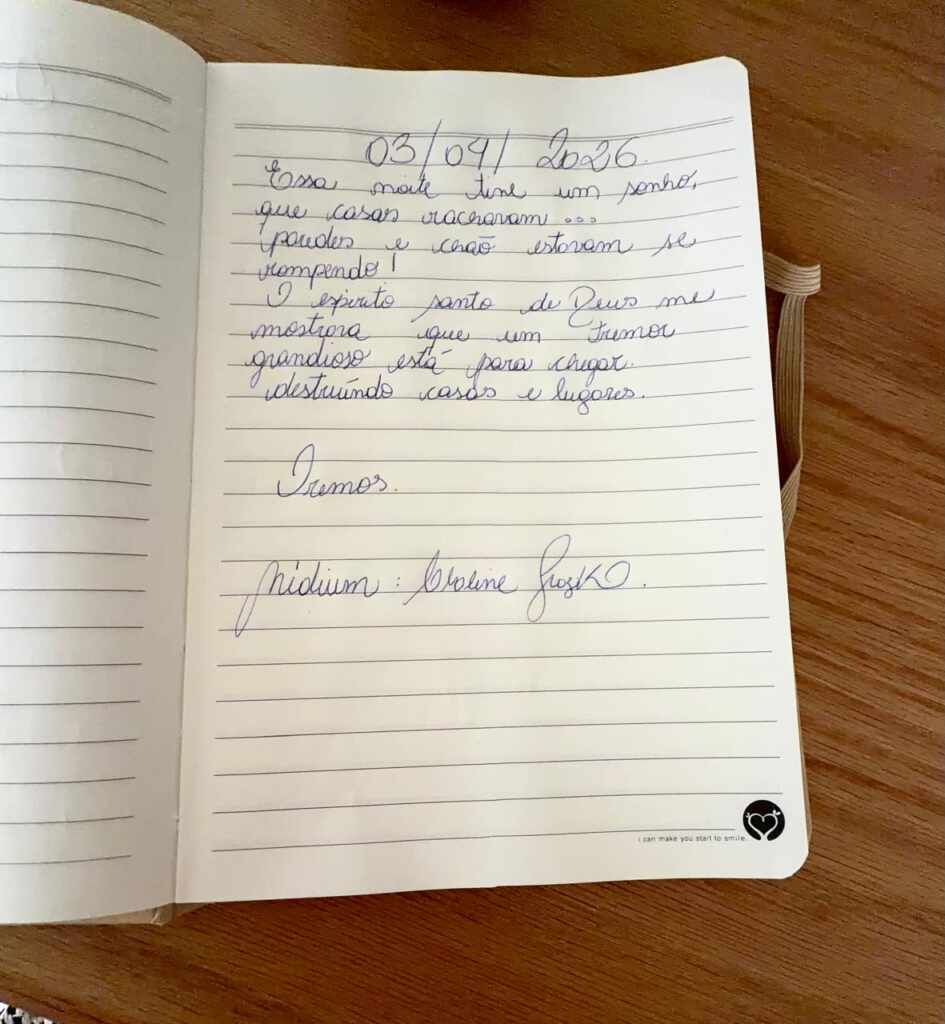 03/04/2026.
Essa noite tive um sonho,
que casas rachavam ...
paredes e chão estavam se
rompendo!
O espirito santo de Deus me
mostrara que um tremor
grandioso está para chegar.
destruíndo casas e lugares.
Oremos.
Médium: Croline
i can make you start to smile.